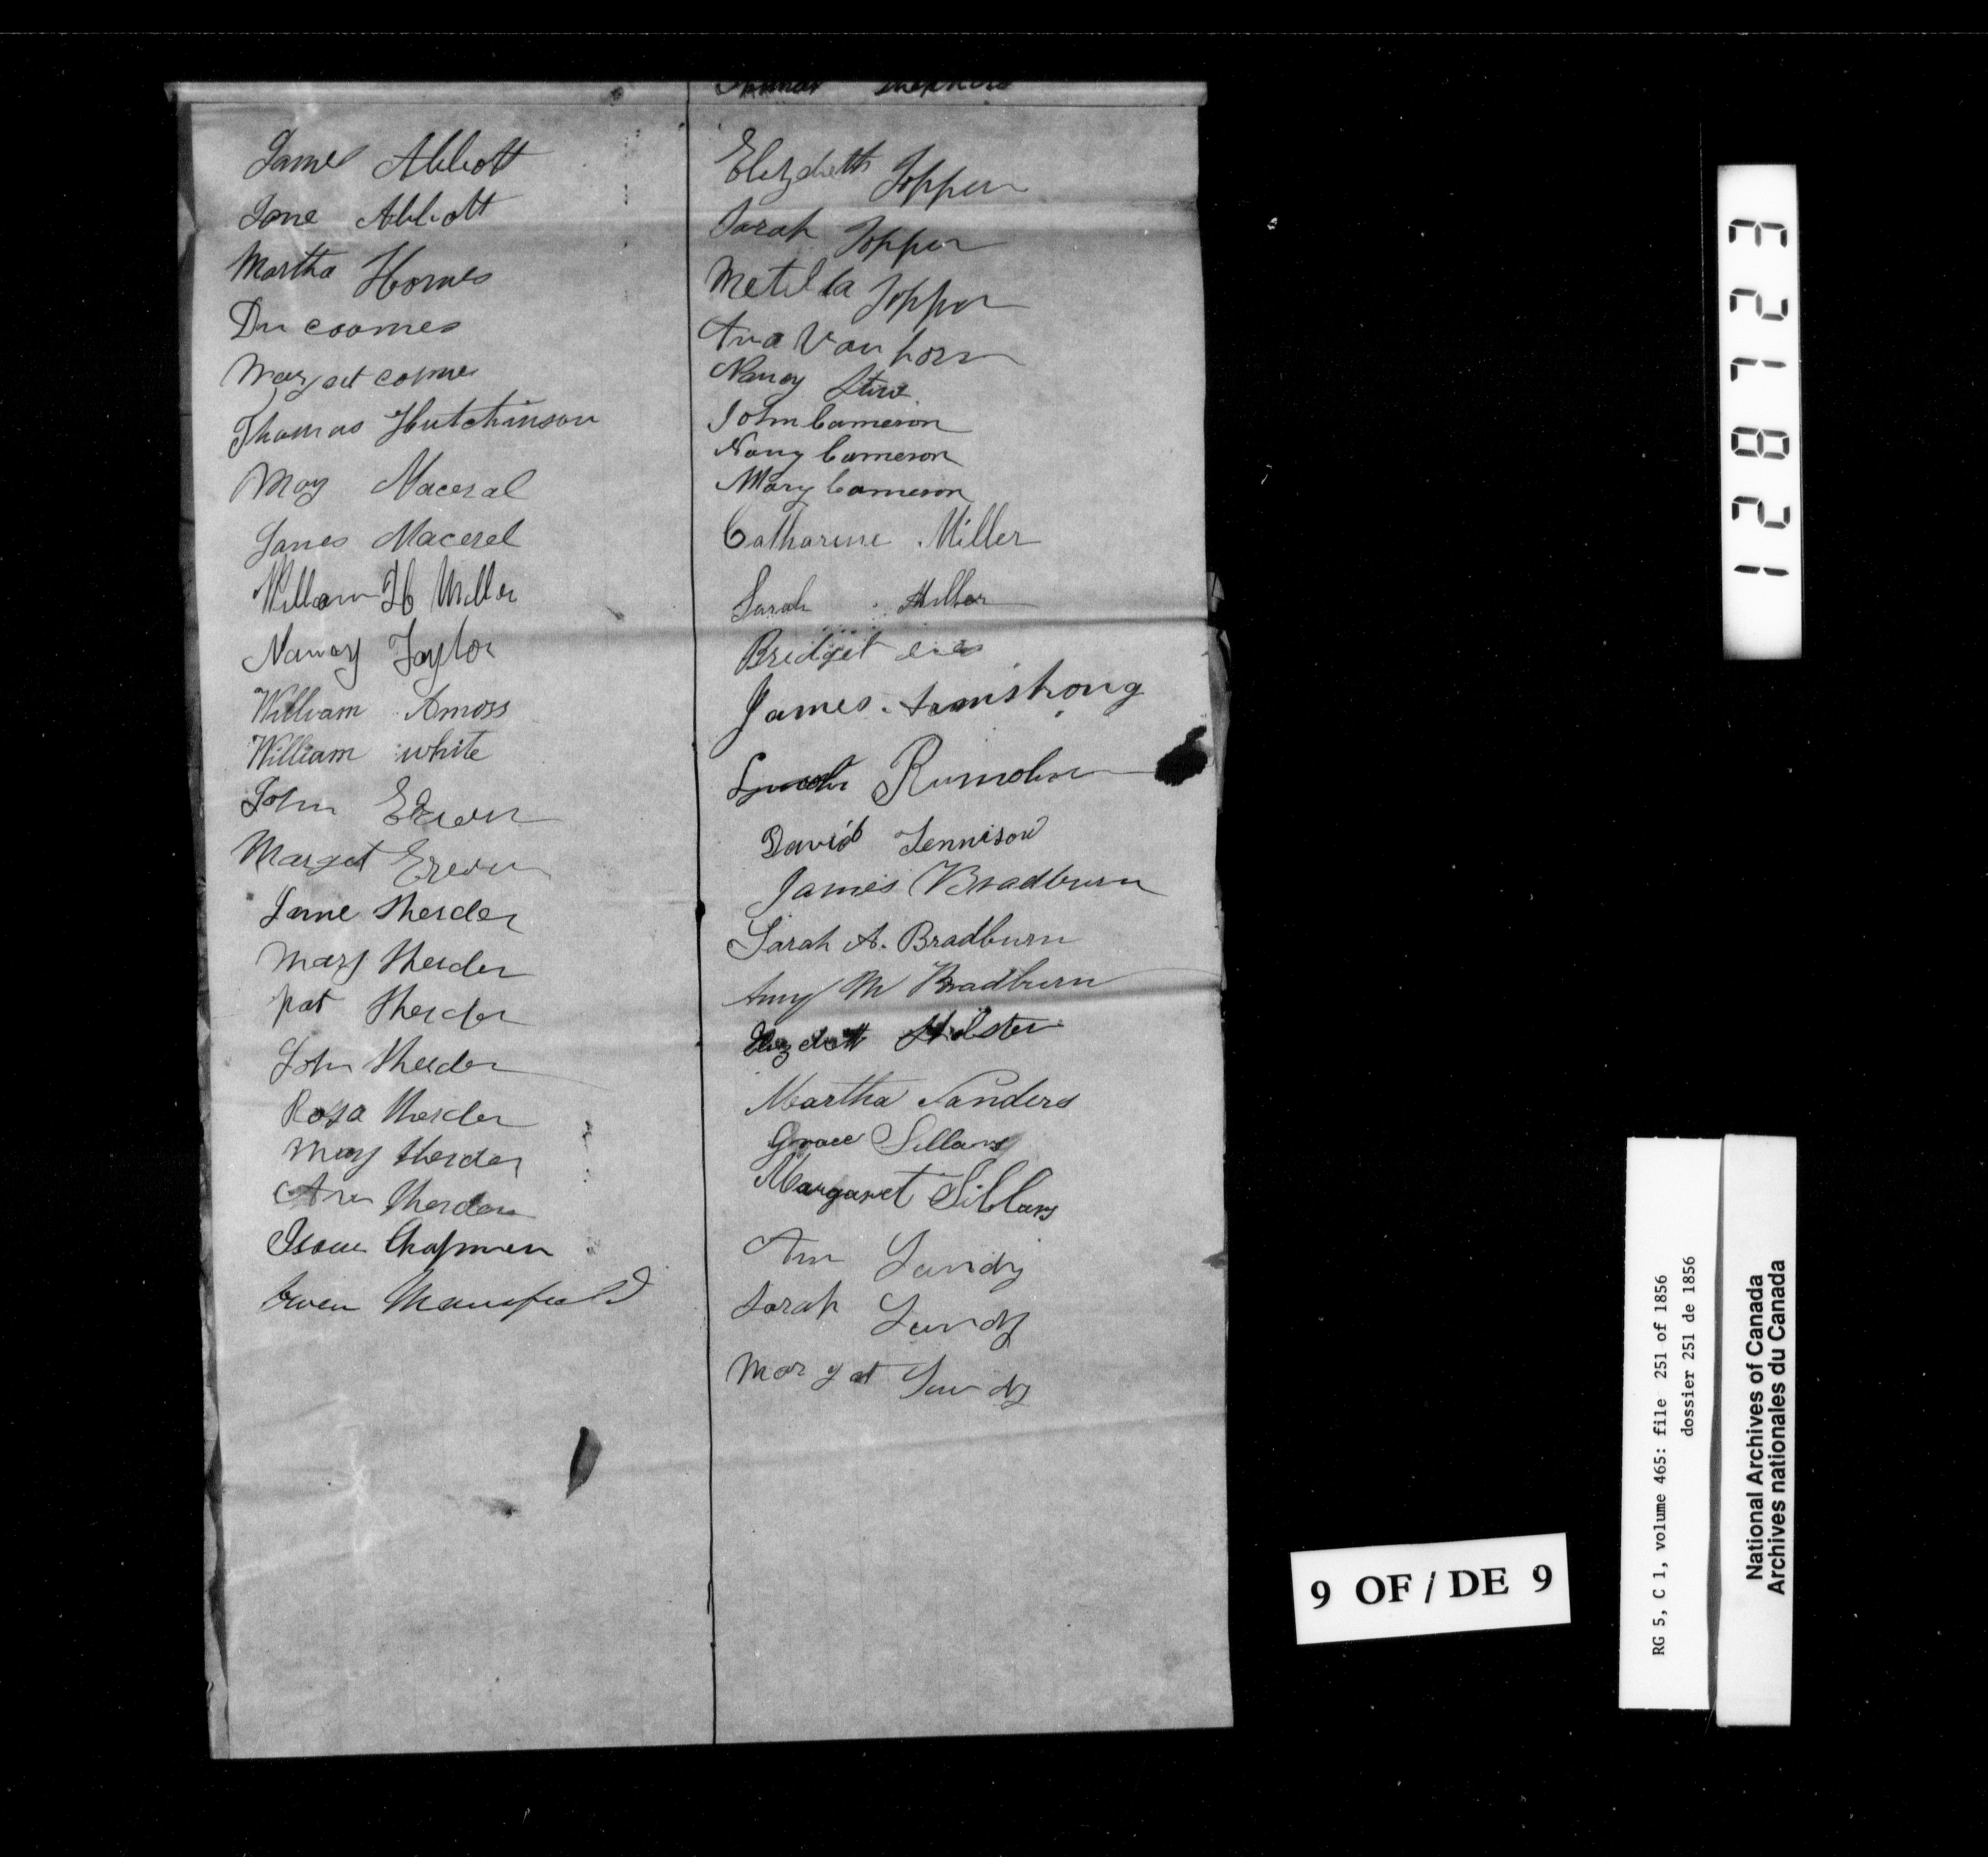 James Abbott
Jane Abbott
Martha Homes
Dn coomes
Margaet coomes
Thomas Hutchinson
May Maceral
Janes Macerel
William H Miller
Nancy Taylor
William Amoss
William white
John Erwin
Marget Erwin
Jane Sherder
Mary Sherder
pat Sherder
John Sherder
Rosa Sherder
Mary Sherder
Ann Sherden
Isaac Chapmen
Owen Mansfield
Thomas
Elizebeth Topper
Sarah Topper
Metilda Topper
Ana Van horn
Nancy
John Cameron
Nancy Cameron
Mary Cameron
Catharine Miller
Sarah Miller
Bridget
James Armstrong
David Tennison
James Bradburn
Sarah A. Bradburn
Amy M Bradburn
Elizebeth Hilster
Martha Sanders
Grace Sillars
Margaret Sillars
Ann Lundy
Sarah Lundy
Marget Lundy
9 OF / DE 9
RG 5, C 1, volume 465: file 251 of 1856
dossier 251 de 1856
National Archives of Canada
Archives nationales du Canada
1 2 8 1 2 3